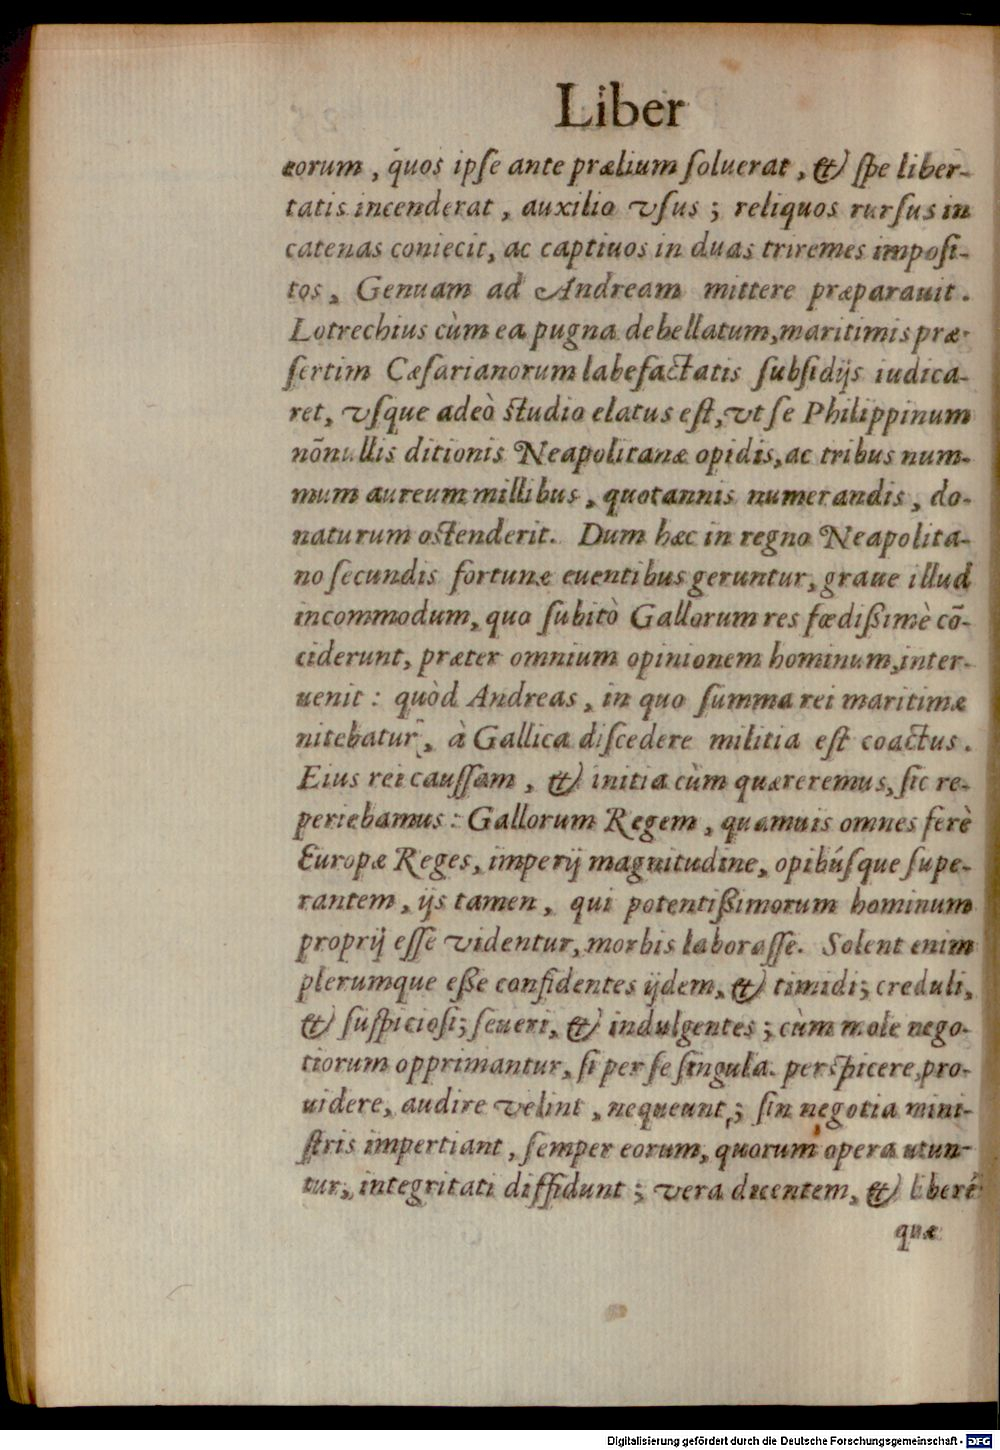 Liber
eorum, quos ipſe ante prælium ſoluerat, & ſpe liber-
tatis incenderat, auxilio vſus; reliquos rurſus in
catenas coniecit, ac captiuos in duas triremes impoſi-
tos, Genuam ad Andream mittere præparauit.
Lotrechius cùm ea pugna debellatum, maritimis præ-
ſertim Cæſarianorum labefactatis ſubſidijs iudica-
ret, vſque adeò ſtudio elatus eſt, vt ſe Philippinum
nõnullis ditionis Neapolitanæ opidis, ac tribus num-
mum aureum millibus, quotannis numerandis, do-
naturum oſtenderit. Dum hæc in regno Neapolita-
no ſecundis fortunæ euentibus geruntur, graue illud
incommodum, quo ſubitò Gallorum res fœdißimè cõ-
ciderunt, præter omnium opinionem hominum, inter-
uenit: quòd Andreas, in quo ſumma rei maritimæ
nitebatur, à Gallica diſcedere militia eſt coactus.
Eius rei cauſſam, & initia cùm quæreremus, ſic re-
periebamus: Gallorum Regem, quamuis omnes ferè
Europæ Reges, imperij magnitudine, opibúſque ſupe-
rantem, ijs tamen, qui potentißimorum hominum
proprij eſſe videntur, morbis laboraſſe. Solent enim
plerumque eße confidentes ijdem, & timidi; creduli,
& ſuſpicioſi; ſeueri, & indulgentes; cùm mole nego-
tiorum opprimantur, ſi per ſe ſingula perſpicere, pro-
uidere, audire velint, nequeunt; ſin negotia mini-
ſtris impertiant, ſemper eorum, quorum opera utun-
tur, integritati diffidunt; vera dicentem, & liberè
quæ
Digitalisierung gefördert durch die Deutsche Forschungsgemeinschaft - DFG